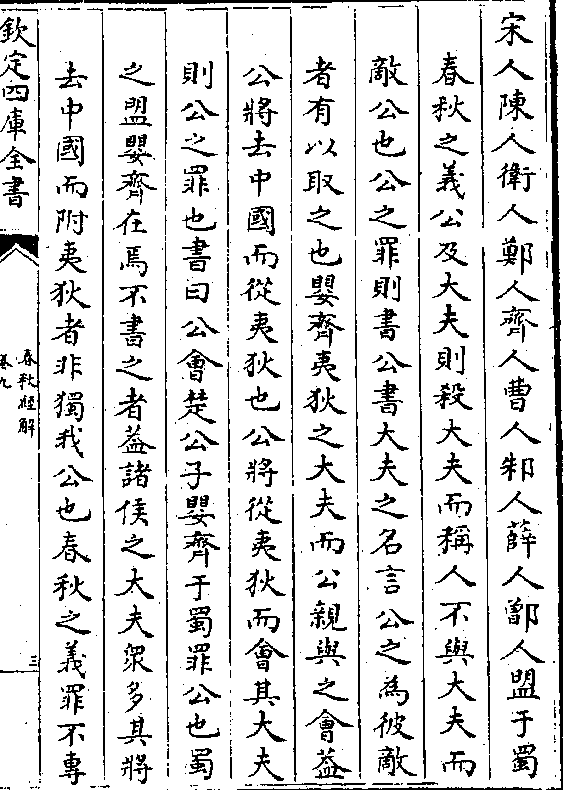 宋人陳人衛人鄭人齊人曹人邾人薛人鄫人盟于蜀
春秋之義公及大夫則殺大夫而稱人不與大夫而
敵公也公之罪則書公書大夫之名言公之為彼敵
者有以取之也嬰齊夷狄之大夫而公親與之會葢
公將去中國而從夷狄也公將從夷狄而會其大夫
則公之罪也書曰公會楚公子嬰齊于蜀罪公也蜀
之盟嬰齊在焉不書之者葢諸侯之大夫衆多其將
去中國而附夷狄者非獨我公也春秋之義罪不專
欽定四庫全書
春秋經解
卷九
三